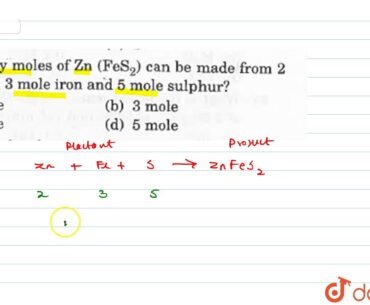 y moles of Zn (FeS₂) can be made from 2
3 mole iron and 5 mole sulphur?
e (b) 3 mole
e (d) 5 mole
Reactant Product
Zn + Fe + S → ZnFeS₂
2 3 5
do